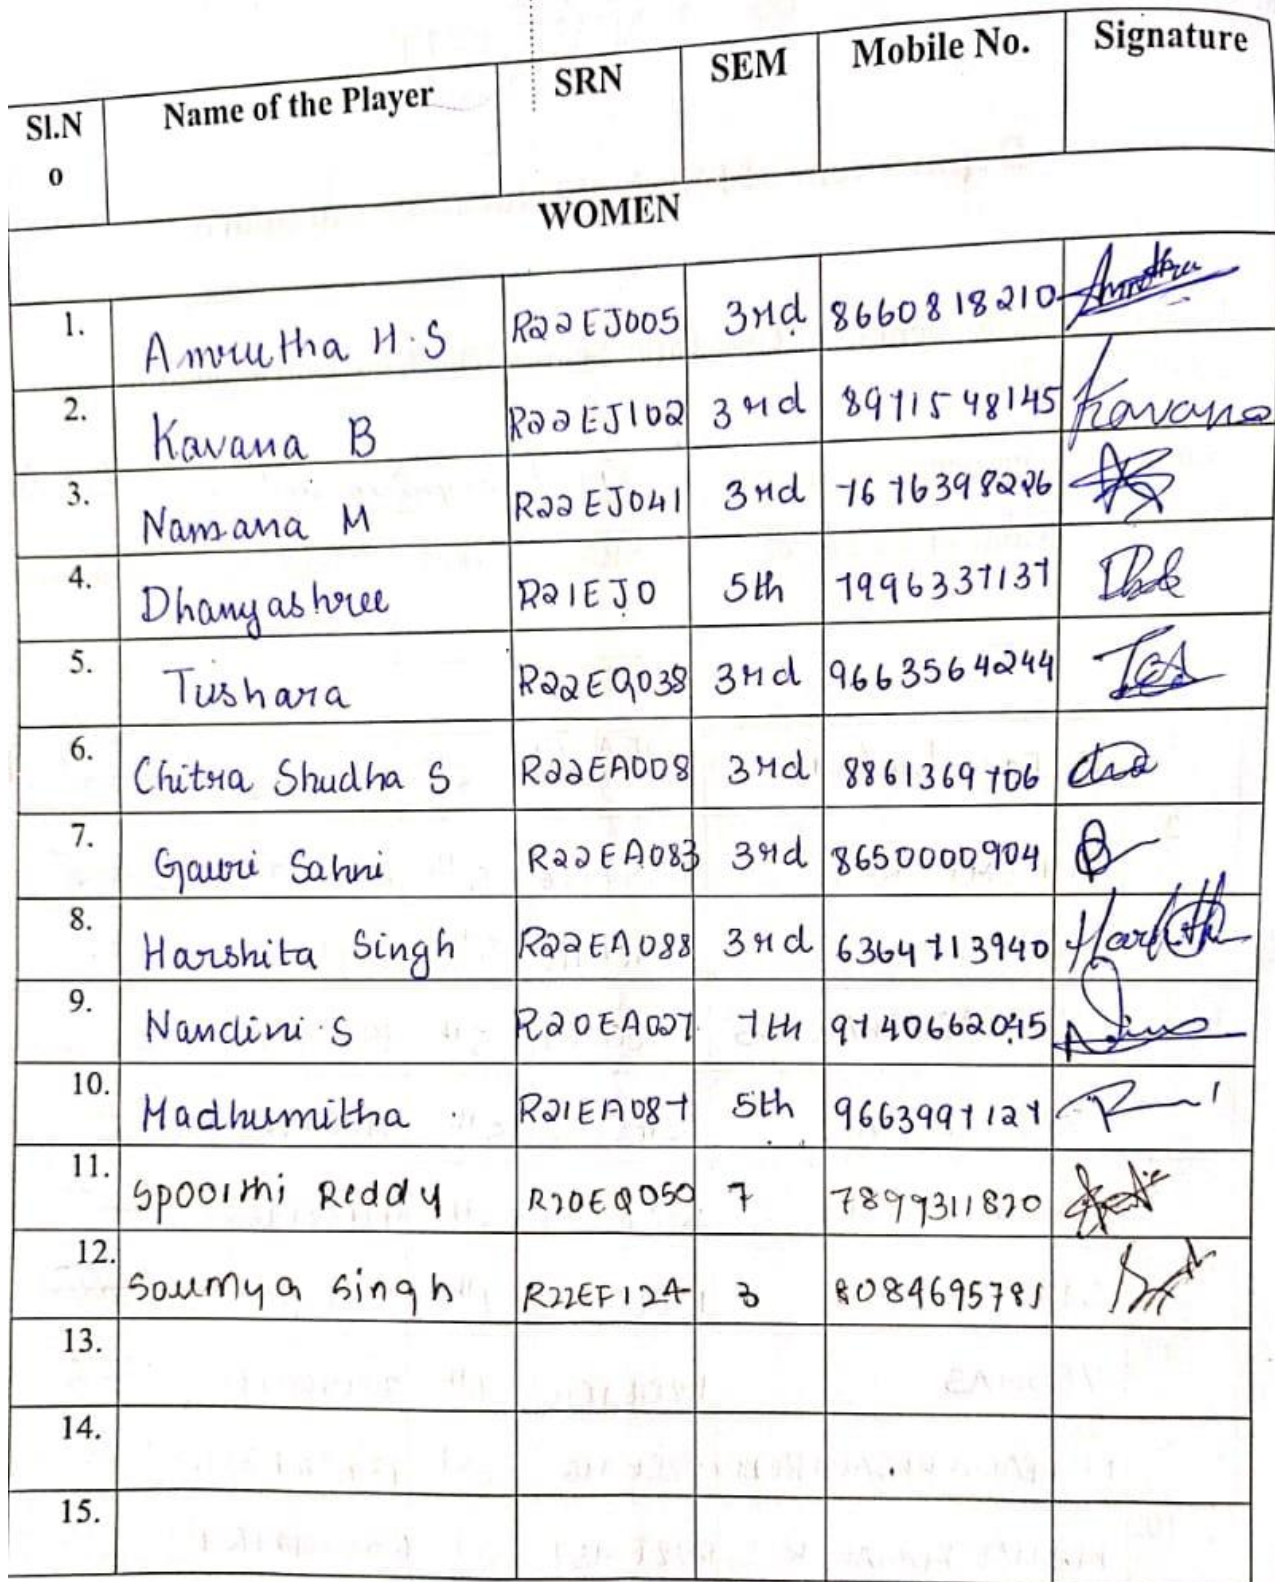 Sl.No Name of the Player SRN SEM Mobile No. Signature
WOMEN
1. Amrutha H.S R22EJ005 3rd 8660818210 Amrutha
2. Kavana B R22EJ102 3rd 8971548145 Kavana
3. Namana M R22EJ041 3rd 7676398226
4. Dhanyashree R21EJ0 5th 7996337137
5. Tushara R22EQ038 3rd 9663564244
6. Chitra Shudha S R22EA008 3rd 8861369706
7. Gauri Sahni R22EA083 3rd 8650000904
8. Harshita Singh R22EA088 3rd 6364713940
9. Nandini S R20EA027 7th 9740662045
10. Madhumitha R21EA087 5th 9663997127
11. Spoorthi Reddy R20EQ050 7 7899311820
12. Soumya Singh R22EF124 3 8084695781
13.
14.
15.